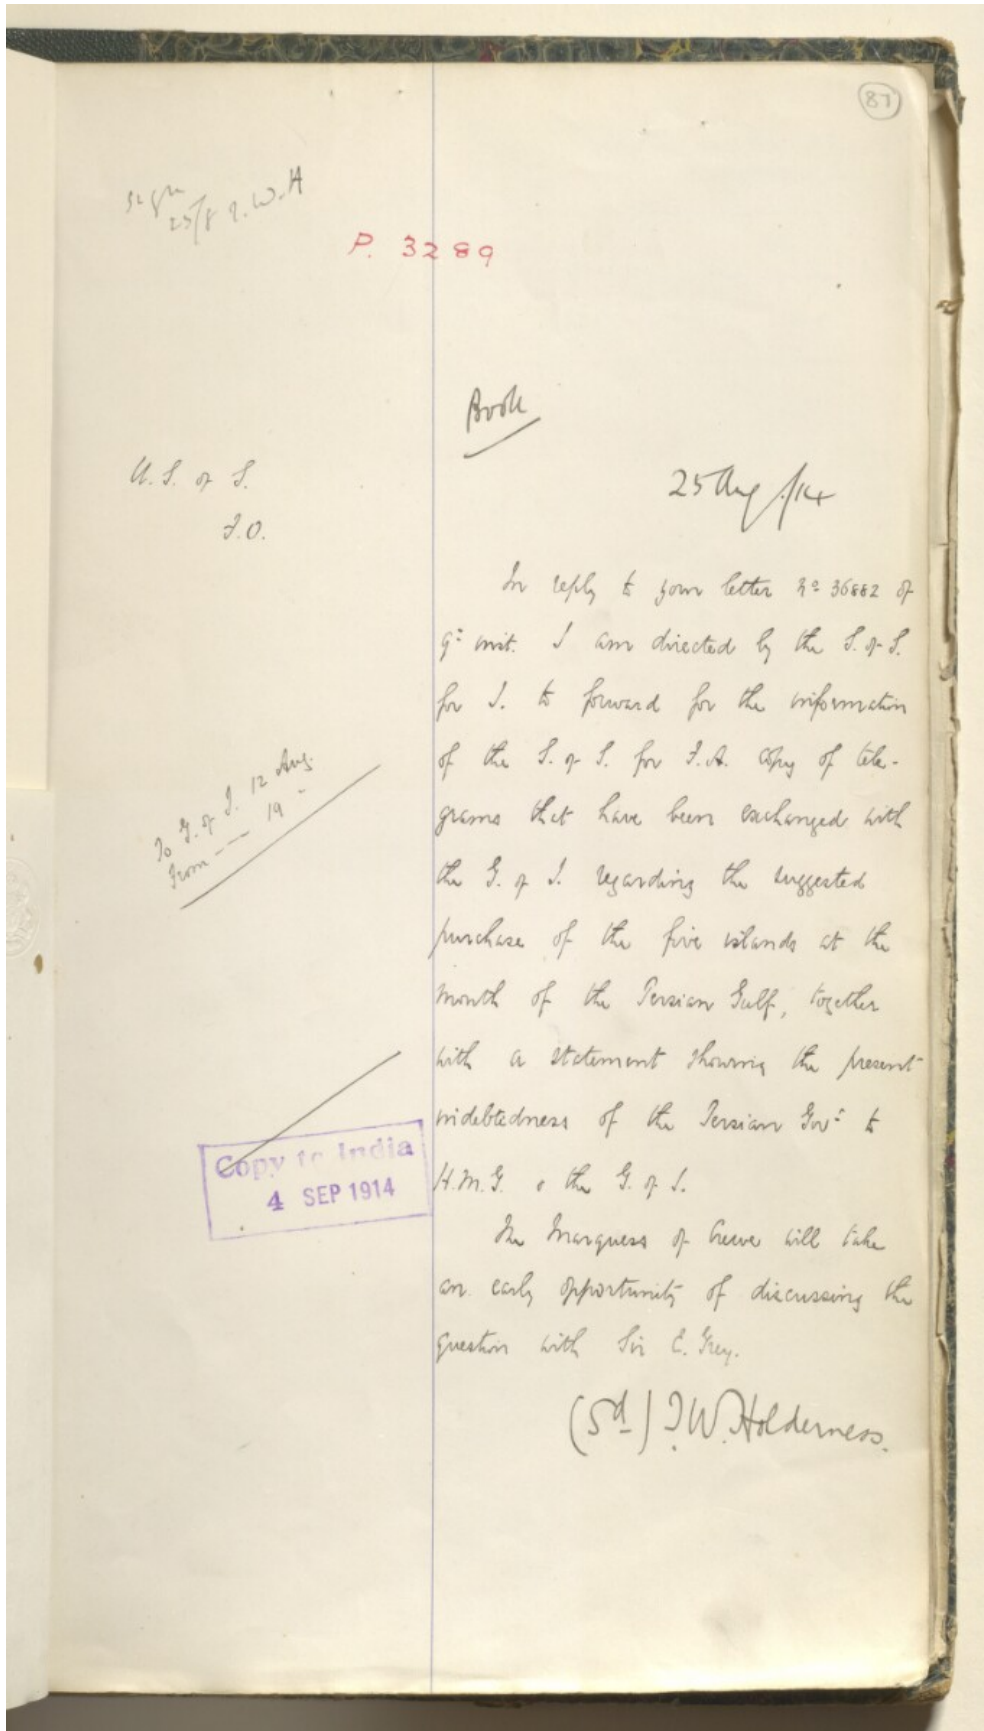 87
25/8 T.W.H
P. 3289
Book
U.S. of S.
F.O.
25 Aug/14
In reply to your letter No 36882 of
9th inst. I am directed by the S. of S.
for I. to forward for the information
of the S. of S. for F.A. copy of tele-
grams that have been exchanged with
the G. of I. regarding the suggested
purchase of the five islands at the
mouth of the Persian Gulf, together
with a statement showing the present
indebtedness of the Persian Govt to
H.M.G. & the G. of I.
The Marquess of Crewe will take
an early opportunity of discussing the
question with Sir E. Grey.
(Sd) T.W. Holderness.
To G. of I. 12 Aug.
From -- 19 -
Copy to India
4 SEP 1914